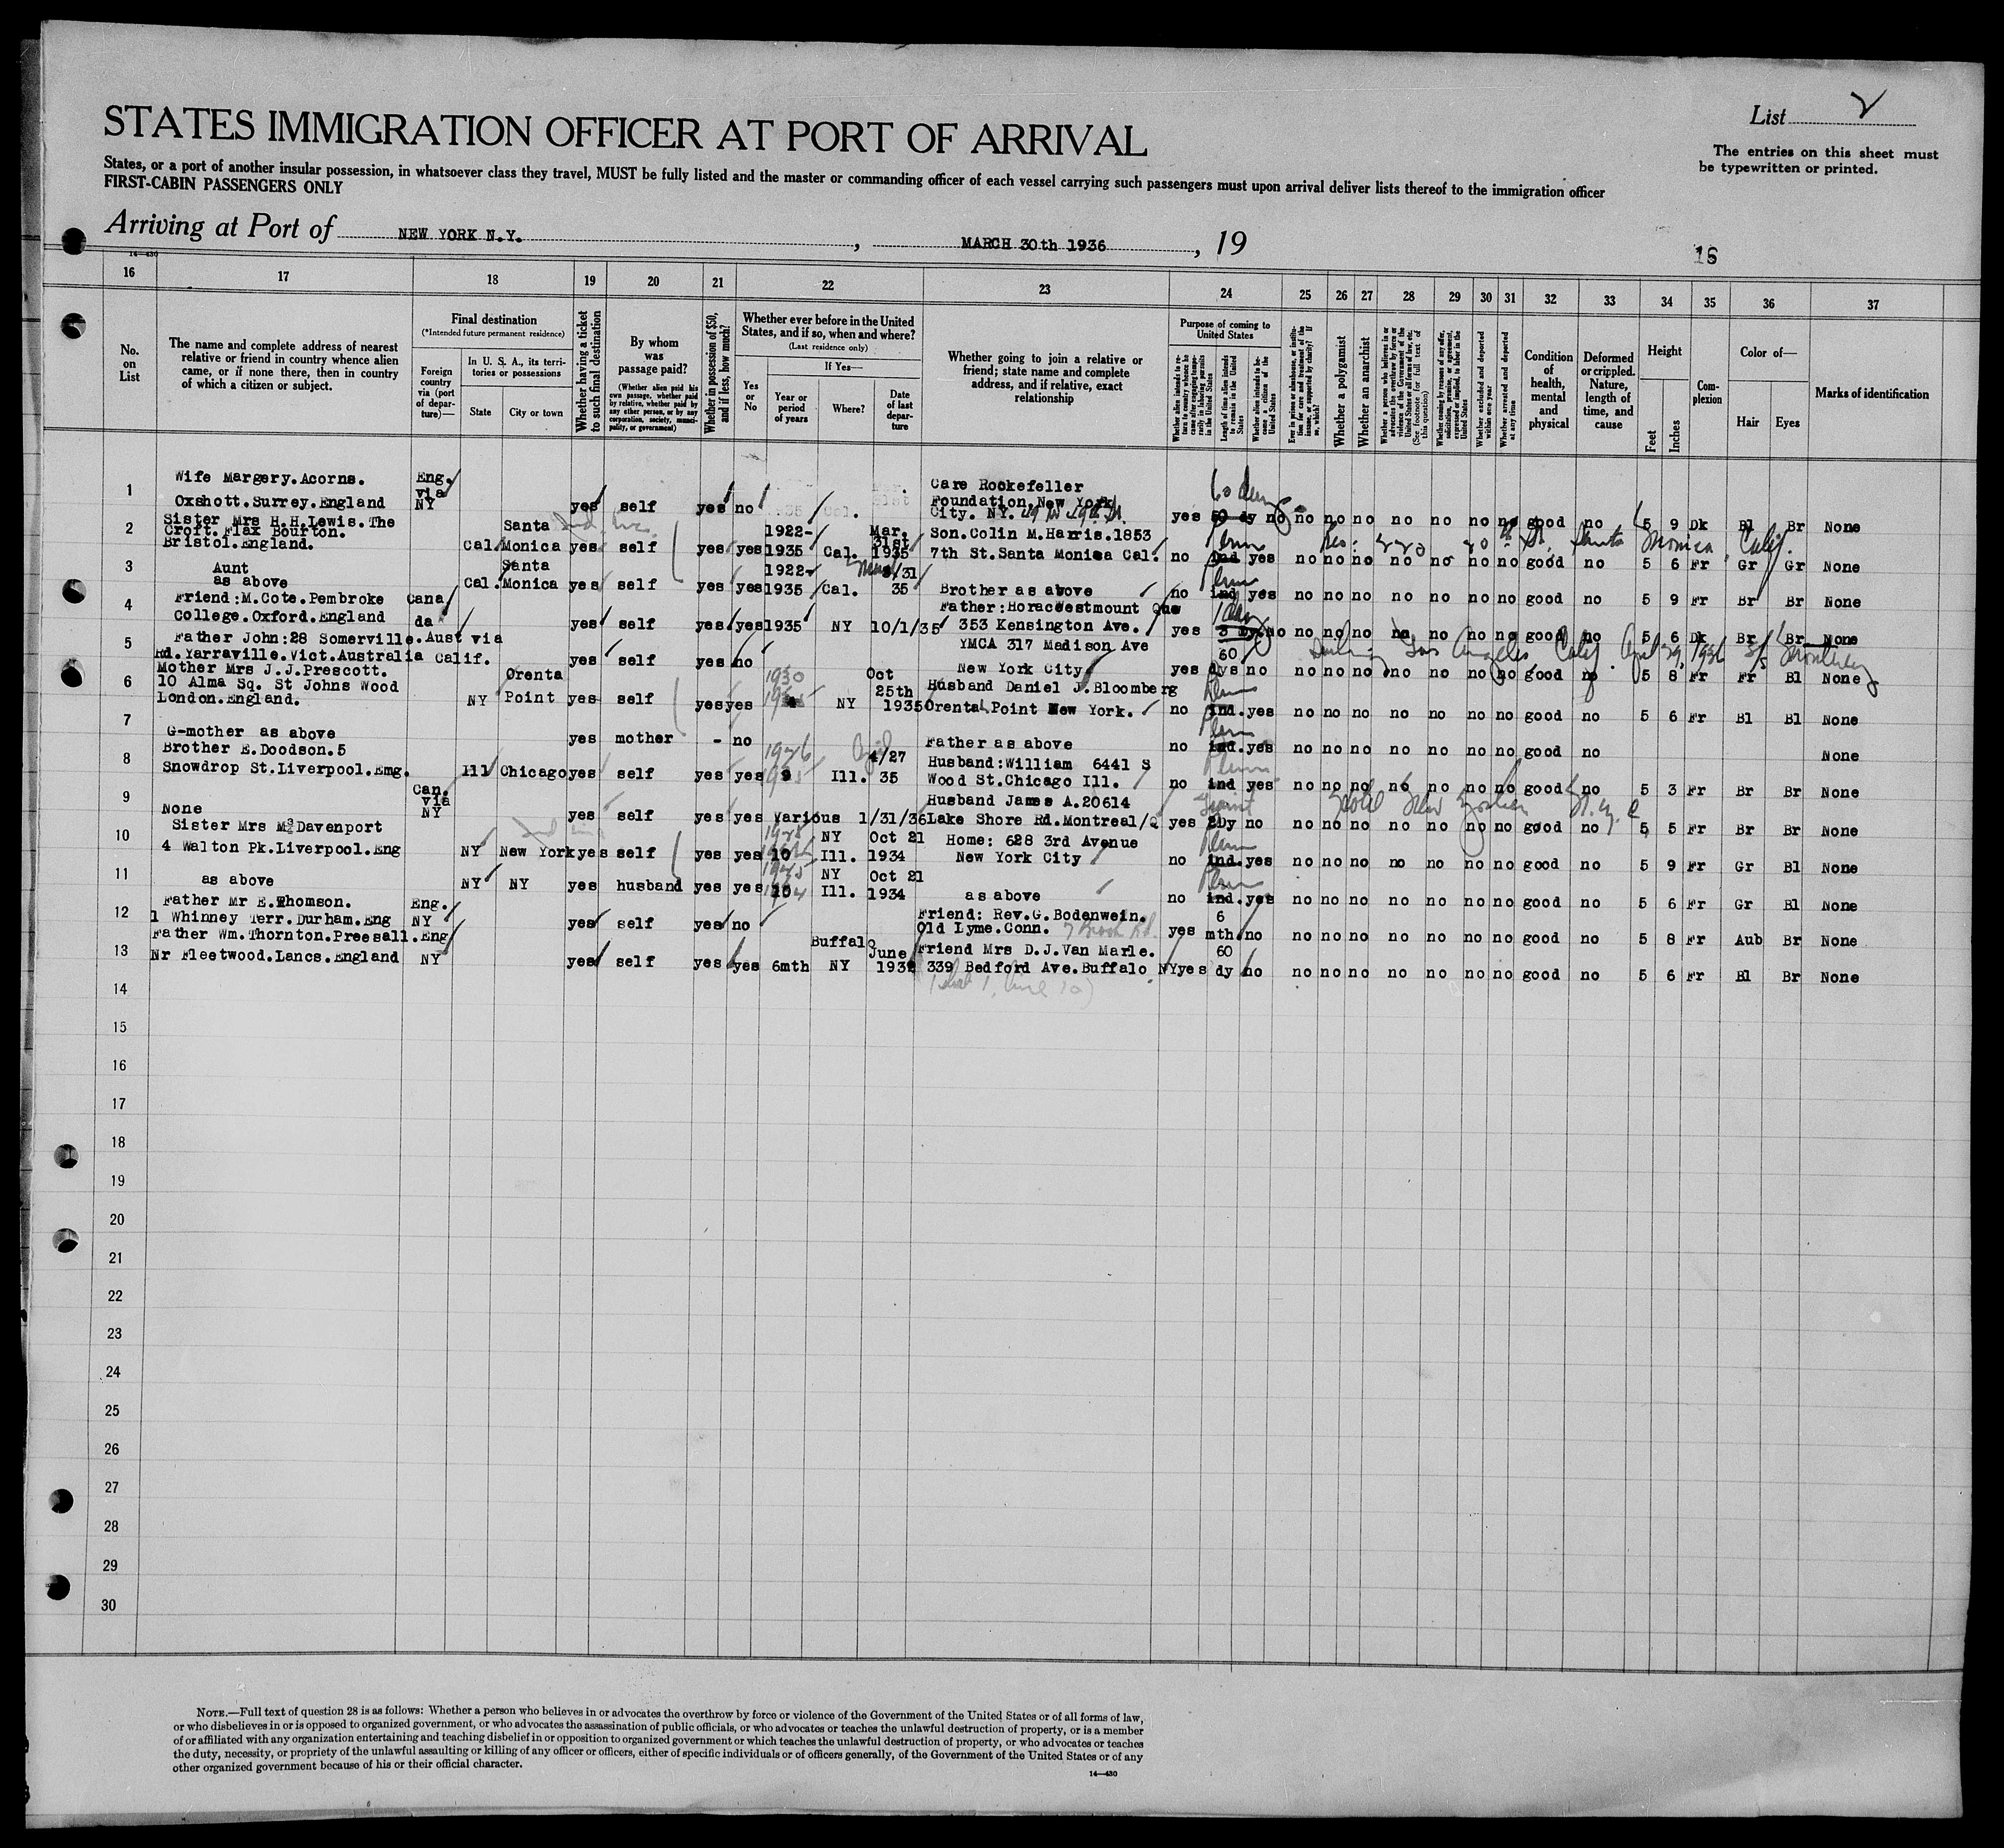 List 2
STATES IMMIGRATION OFFICER AT PORT OF ARRIVAL
The entries on this sheet must be typewritten or printed.
States, or a port of another insular possession, in whatsoever class they travel, MUST be fully listed and the master or commanding officer of each vessel carrying such passengers must upon arrival deliver lists thereof to the immigration officer
FIRST-CABIN PASSENGERS ONLY
Arriving at Port of NEW YORK N.Y. , MARCH 30th 1936 , 19
14—430
16 17 18 19 20 21 22 23 24 25 26 27 28 29 30 31 32 33 34 35 36 37
No. on List
The name and complete address of nearest relative or friend in country whence alien came, or if none there, then in country of which a citizen or subject.
Final destination
(*Intended future permanent residence)
Foreign country via (port of departure)—
In U. S. A., its territories or possessions
State
City or town
Whether having a ticket to such final destination
By whom was passage paid?
(Whether alien paid his own passage, whether paid by relative, whether paid by any other person, or by any corporation, society, municipality, or government)
Whether in possession of $50, and if less, how much?
Whether ever before in the United States, and if so, when and where?
(Last residence only)
Yes or No
If Yes—
Year or period of years
Where?
Date of last departure
Whether going to join a relative or friend; state name and complete address, and if relative, exact relationship
Purpose of coming to United States
Whether alien intends to return to country whence he came after engaging temporarily in laboring pursuits in the United States
Length of time alien intends to remain in the United States
Whether alien intends to become a citizen of the United States
Ever in prison or almshouse, or institution for care and treatment of the insane, or supported by charity? If so, which?
Whether a polygamist
Whether an anarchist
Whether a person who believes in or advocates the overthrow by force or violence of the Government of the United States or all forms of law, etc. (See footnote for full text of this question)
Whether coming by reasons of any offer, solicitation, promise, or agreement, expressed or implied, to labor in the United States
Whether excluded and deported within one year
Whether arrested and deported at any time
Condition of health, mental and physical
Deformed or crippled. Nature, length of time, and cause
Height
Feet
Inches
Complexion
Color of—
Hair
Eyes
Marks of identification
1 Wife Margery.Acorns. Oxshott.Surrey.England Eng. via NY yes self yes no Care Rockefeller Foundation.New York City. NY. yes 60 days no no no no no no no no good no 5 9 Dk Bl Br None
2 Sister Mrs H.H.Lewis. The Croft. Flax Bourton. Bristol.England. Cal. Santa Monica yes self yes yes 1922-1935 Cal. Mar. 31st 1935 Son.Colin M.Harris.1853 7th St.Santa Monica Cal. no Perm ind yes no no no no no no no good no 5 6 Fr Gr Gr None
3 Aunt as above Cal. Santa Monica yes self yes yes 1922-1935 Cal. 3/31 35 Brother as above no Perm ind yes no no no no no no no good no 5 9 Fr Br Br None
4 Friend:M.Cote.Pembroke College.Oxford.England Canada yes self yes yes 1935 NY 10/1/35 Father:Horac Westmount Que 353 Kensington Ave. yes 1 day no no no no no no no no good no 5 6 Dk Br Br None
5 Father John:28 Somerville. Rd.Yarraville.Vict.Australia Aust via Calif. yes self yes no YMCA 317 Madison Ave New York City yes 60 dys no no no no no no no no good no 5 8 Fr Fr Bl None
6 Mother Mrs J.J.Prescott. 10 Alma Sq. St Johns Wood London.England. NY Orenta Point yes self yes yes 1930 NY Oct 25th 1935 Husband Daniel J.Bloomberg Orental Point New York. no Perm ind. yes no no no no no no no good no 5 6 Fr Bl Bl None
7 G-mother as above yes mother - no Father as above no Perm ind. yes no no no no no no no good no None
8 Brother E.Doodson.5 Snowdrop St.Liverpool.Emg. Ill Chicago yes self yes yes 1926 Ill. 4/27 35 Husband:William 6441 S Wood St.Chicago Ill. no Perm ind yes no no no no no no no good no 5 3 Fr Br Br None
9 None Can. via NY yes self yes yes Various 1/31/36 Husband James A.20614 Lake Shore Rd.Montreal/Q yes 2Dy no no no no no no no no good no 5 5 Fr Br Br None
10 Sister Mrs Davenport 4 Walton Pk.Liverpool.Eng NY New York yes self yes yes 10 NY Ill. Oct 21 1934 Home: 628 3rd Avenue New York City no Perm ind. yes no no no no no no no good no 5 9 Fr Gr Bl None
11 as above NY NY yes husband yes yes 10 NY Ill. Oct 21 1934 as above no Perm ind. yes no no no no no no no good no 5 6 Fr Gr Bl None
12 Father Mr E.Thomson. 1 Whinney Terr.Durham.Eng Eng. NY yes self yes no Friend: Rev.G.Bodenwein. Old Lyme.Conn. yes 6 mth. no no no no no no no no good no 5 8 Fr Aub Br None
13 Father Wm.Thornton.Preesall.Eng Nr Fleetwood.Lancs.England NY yes self yes yes 6mth Buffalo NY June 193 Friend Mrs D.J.Van Marle. 339 Bedford Ave.Buffalo NY yes 60 dy no no no no no no no no good no 5 6 Fr Bl Br None
14
15
16
17
18
19
20
21
22
23
24
25
26
27
28
29
30
NOTE.—Full text of question 28 is as follows: Whether a person who believes in or advocates the overthrow by force or violence of the Government of the United States or of all forms of law,
or who disbelieves in or is opposed to organized government, or who advocates the assassination of public officials, or who advocates or teaches the unlawful destruction of property, or is a member
of or affiliated with any organization entertaining and teaching disbelief in or opposition to organized government or which teaches the unlawful destruction of property, or who advocates or teaches
the duty, necessity, or propriety of the unlawful assaulting or killing of any officer or officers, either of specific individuals or of officers generally, of the Government of the United States or of any
other organized government because of his or their official character.
14—430